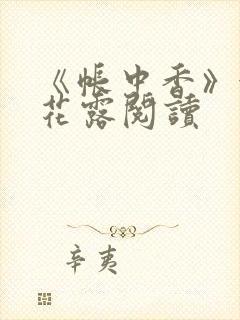 《帐中香》
花露閱讀
辛夷